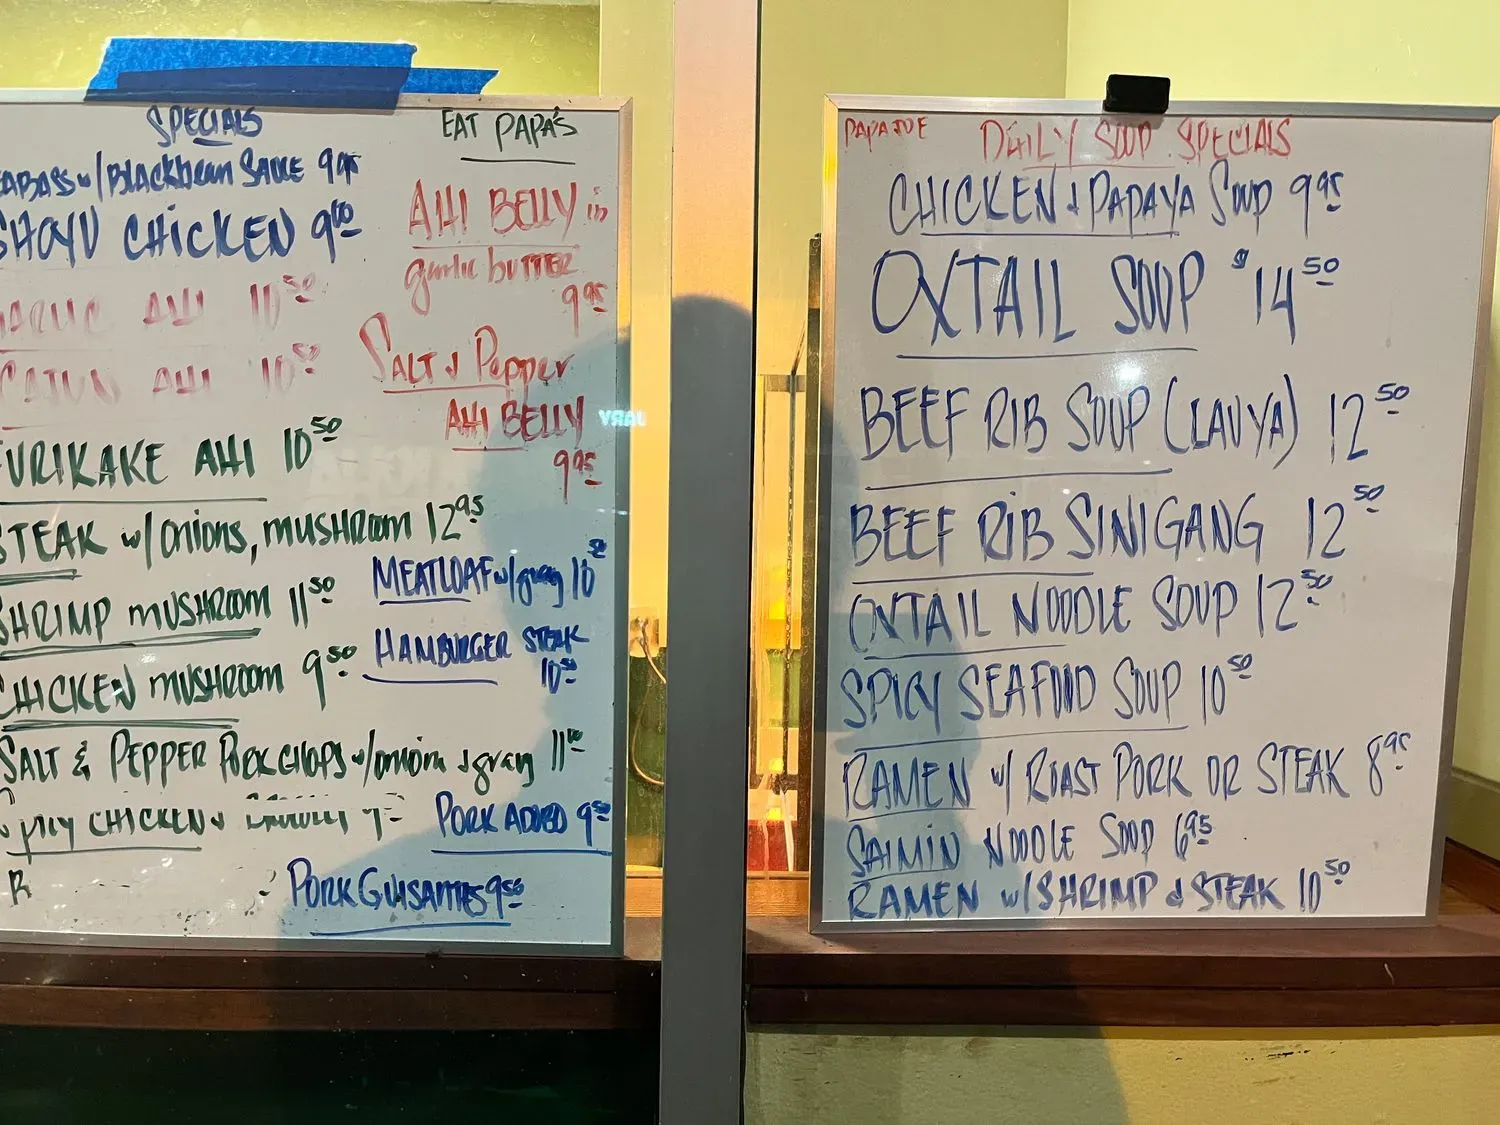 SPECIALS
EABASS w/BlackbeAn SAUCE 9 95
SHOYU CHICKEN 9 00
GARLIC AHI 10 50
CAJUN AHI 10 50
FURIKAKE AHI 10 50
STEAK w/ onions, mushroom 12 95
SHRIMP mushroom 11 50
CHICKEN mushroom 9 50
SALT & PEPPER PORK CHOPS w/ onion & gravy 11 00
CHICKEN
R
EAT PAPA'S
AHI BELLY in
garlic butter
9 95
SALT & Pepper
AHI BELLY
9 95
MEATLOAF w/ gravy 10
HAMBURGER STEAK
10 50
PORK ADOBO 9 50
PORK GUISANTES 9 50
PAPA JOE
DAILY SOUP SPECIALS
CHICKEN & PAPAYA SOUP 9 95
OXTAIL SOUP $14 50
BEEF RIB SOUP (LAUYA) 12 50
BEEF RIB SINIGANG 12 50
OXTAIL NOODLE SOUP 12 50
SPICY SEAFOOD SOUP 10 50
RAMEN w/ ROAST PORK OR STEAK 8 95
SAIMIN NOODLE SOUP 6 95
RAMEN w/SHRIMP & STEAK 10 50